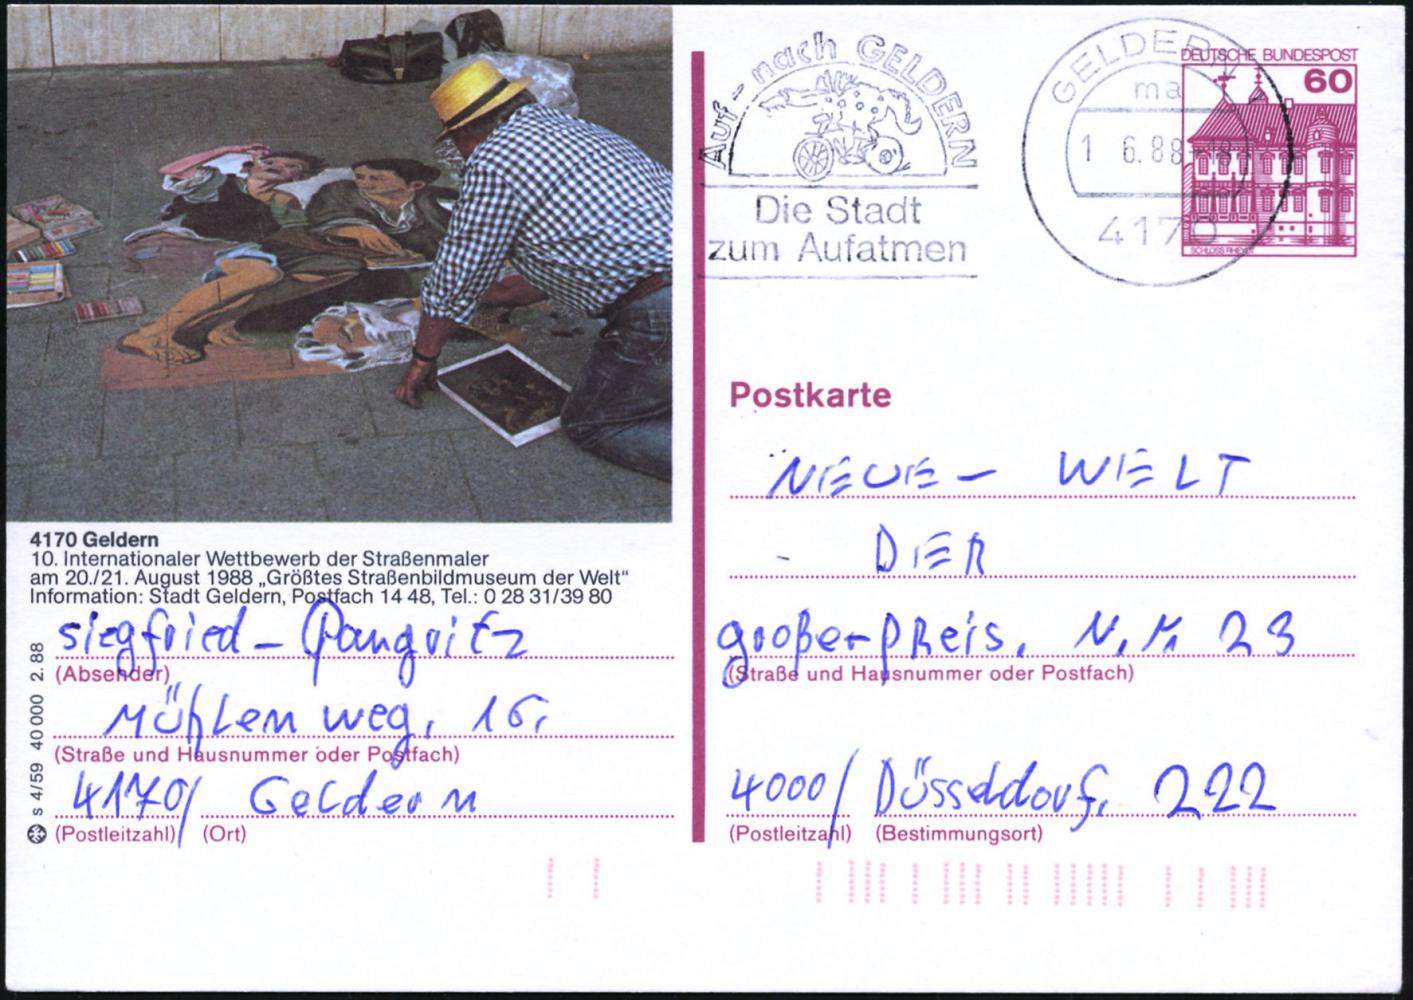 Auf - nach GELDERN
Die Stadt
zum Aufatmen
GELDERN
ma
1 6.88-18
4170
DEUTSCHE BUNDESPOST
60
SCHLOSS RHEYDT
Postkarte
NEUE - WELT
DER
großer-pReis, N.M 23
(Straße und Hausnummer oder Postfach)
4000/ Düsseldorf, 222
(Postleitzahl) (Bestimmungsort)
4170 Geldern
10. Internationaler Wettbewerb der Straßenmaler
am 20./21. August 1988 „Größtes Straßenbildmuseum der Welt“
Information: Stadt Geldern, Postfach 14 48, Tel.: 0 28 31/39 80
siegfried - Pangritz
(Absender)
Mühlenweg, 16,
(Straße und Hausnummer oder Postfach)
4170/ Geldern
(Postleitzahl) (Ort)
s 4/59 40 000 2. 88